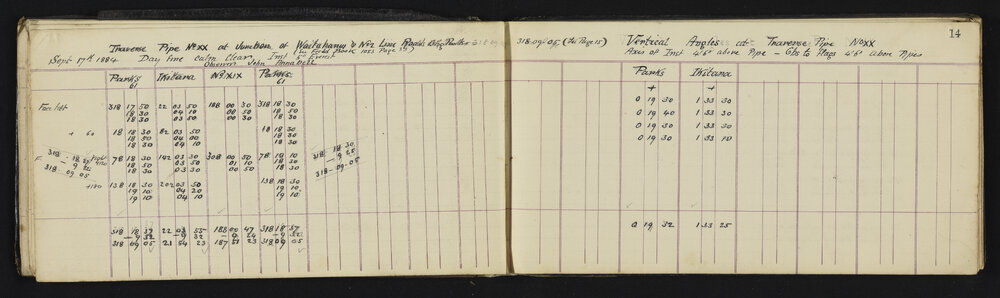 Traverse Pipe No XX at Junction of Waitahanui & No 2 Line Roads
(In Field Book 1053 Page 15)
Sept 17th 1884 Day fine calm Clear Inst 5" Everest
Observer John
Parks Ikitara No XIX Parks
61 61
Face left 318 17 50 22 03 50 188 00 30 318 18 30
18 30 04 10 00 50 18 50
18 30 03 50 00 30 18 30
+ 60 18 18 30 82 03 50 18 18 30
18 50 04 00 18 30
18 30 04 10 18 30
F 78 18 30 142 03 30 308 00 50 78 18 10
18 50 03 50 01 10 18 30
18 30 03 30 00 50 18 30
318-18
- 9
318-09-05
318-18 30
- 9 25
318-09-05
+180 138 18 30 202 03 50 138 18 30
19 10 04 20 19 10
19 10 04 10 19 10
318 18 37 22 03 55 188 00 47 318 18 57
- 9 32 - 9 32 - 9 24 - 9 52
318 09 05 21 54 23 187 51 23 318 09 05
14
318-09-05 (See Page 15) Vertical Angles at Traverse Pipe No XX
Axis of Inst 4'6" above Pipe - Obs to Flags 4'6" above Pipes
Parks Ikitara
+ +
0 19 30 1 33 30
0 19 40 1 33 30
0 19 30 1 33 30
0 19 30 1 33 10
0 19 32 1 33 25